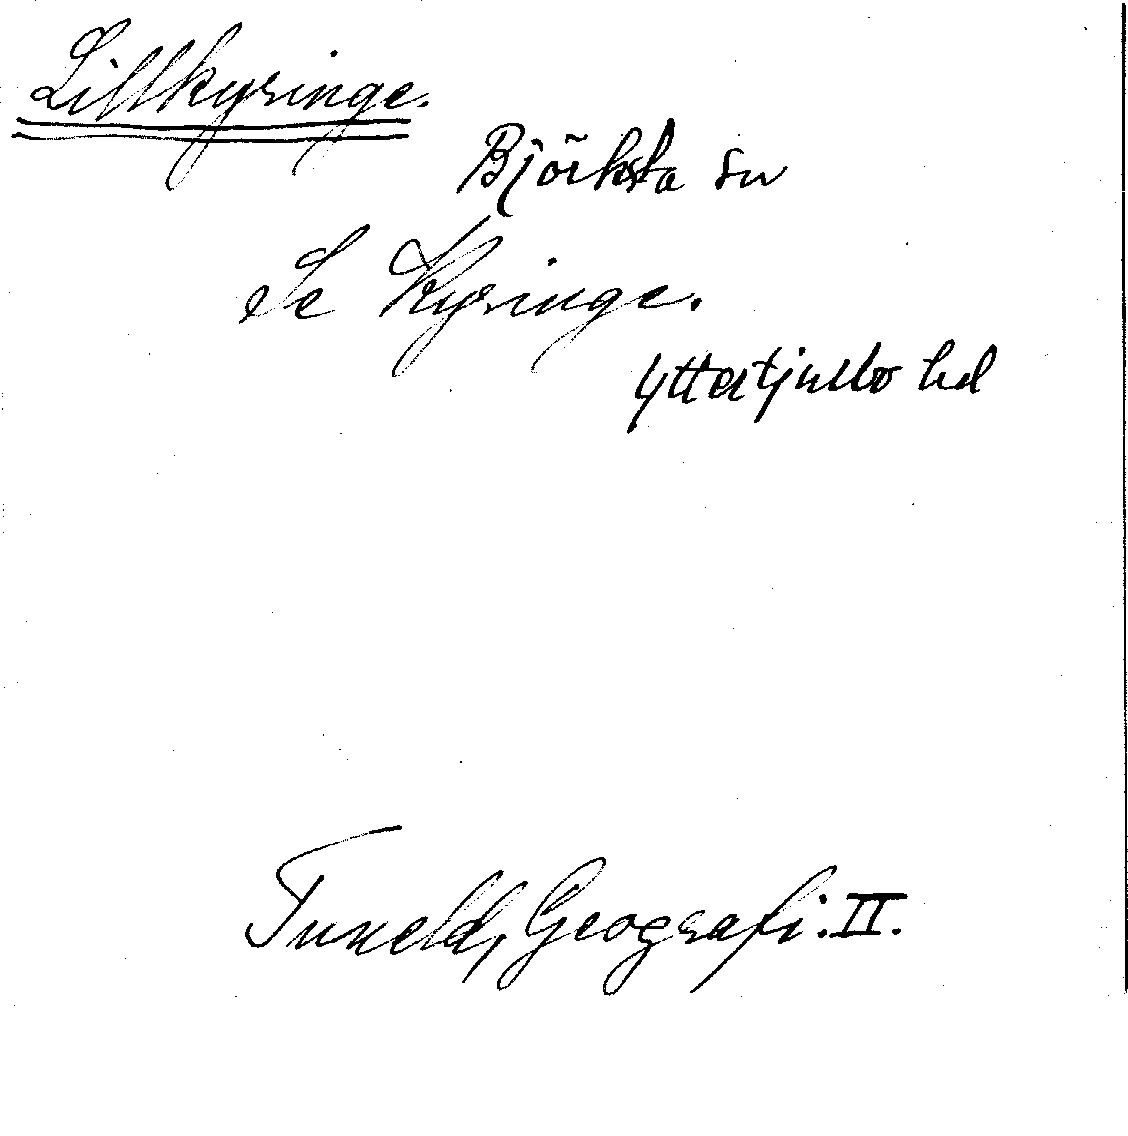 Lillkyringe.
Björksta sn
Se Kyringe.
Yttertjurbo hd
Tuneld, Geografi. II.